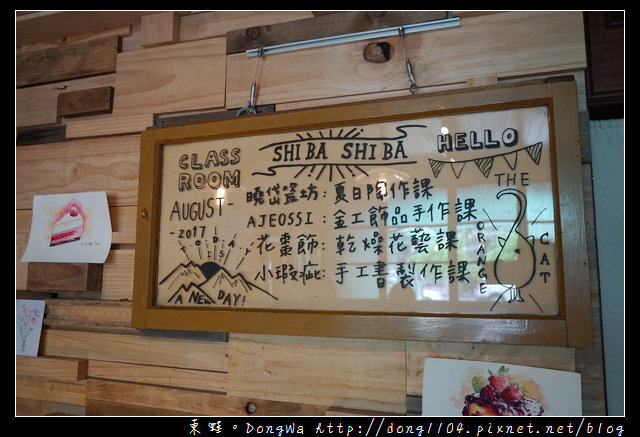 CLASS
ROOM
AUGUST-
-2017-
TODAY
IS
A NEW DAY!
SHI BA SHI BA
曉岱簦坊:夏日陶作課
AJEOSSI:金工飾品手作課
花棗飾:乾燥花藝課
小瑕疵:手工書製作課
HELLO
THE
ORANGE
CAT
東蛙。DongWa http://dong1104.pixnet.net/blog